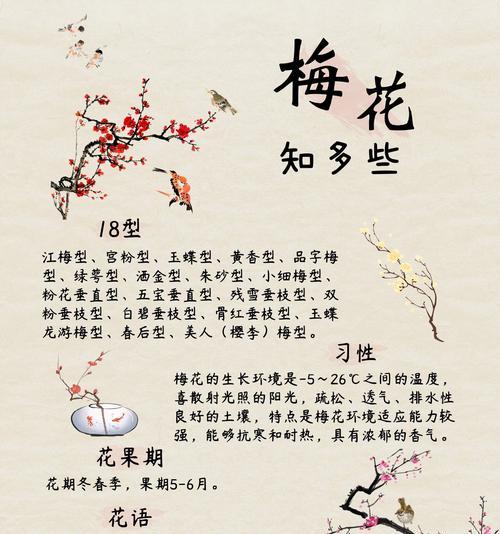 梅花
知多些
18型
江梅型、宫粉型、玉蝶型、黄香型、品字梅
型、绿萼型、洒金型、朱砂型、小细梅型、
粉花垂直型、五宝垂直型、残雪垂枝型、双
粉垂枝型、白碧垂枝型、骨红垂枝型、玉蝶
龙游梅型、春后型、美人（樱李）梅型。
习性
梅花的生长环境是-5~26℃之间的温度，
喜散射光照的阳光，疏松、透气、排水性
良好的土壤，特点是梅花环境适应能力较
强，能够抗寒和耐热，具有浓郁的香气。
花果期
花期冬春季，果期5-6月。
花语